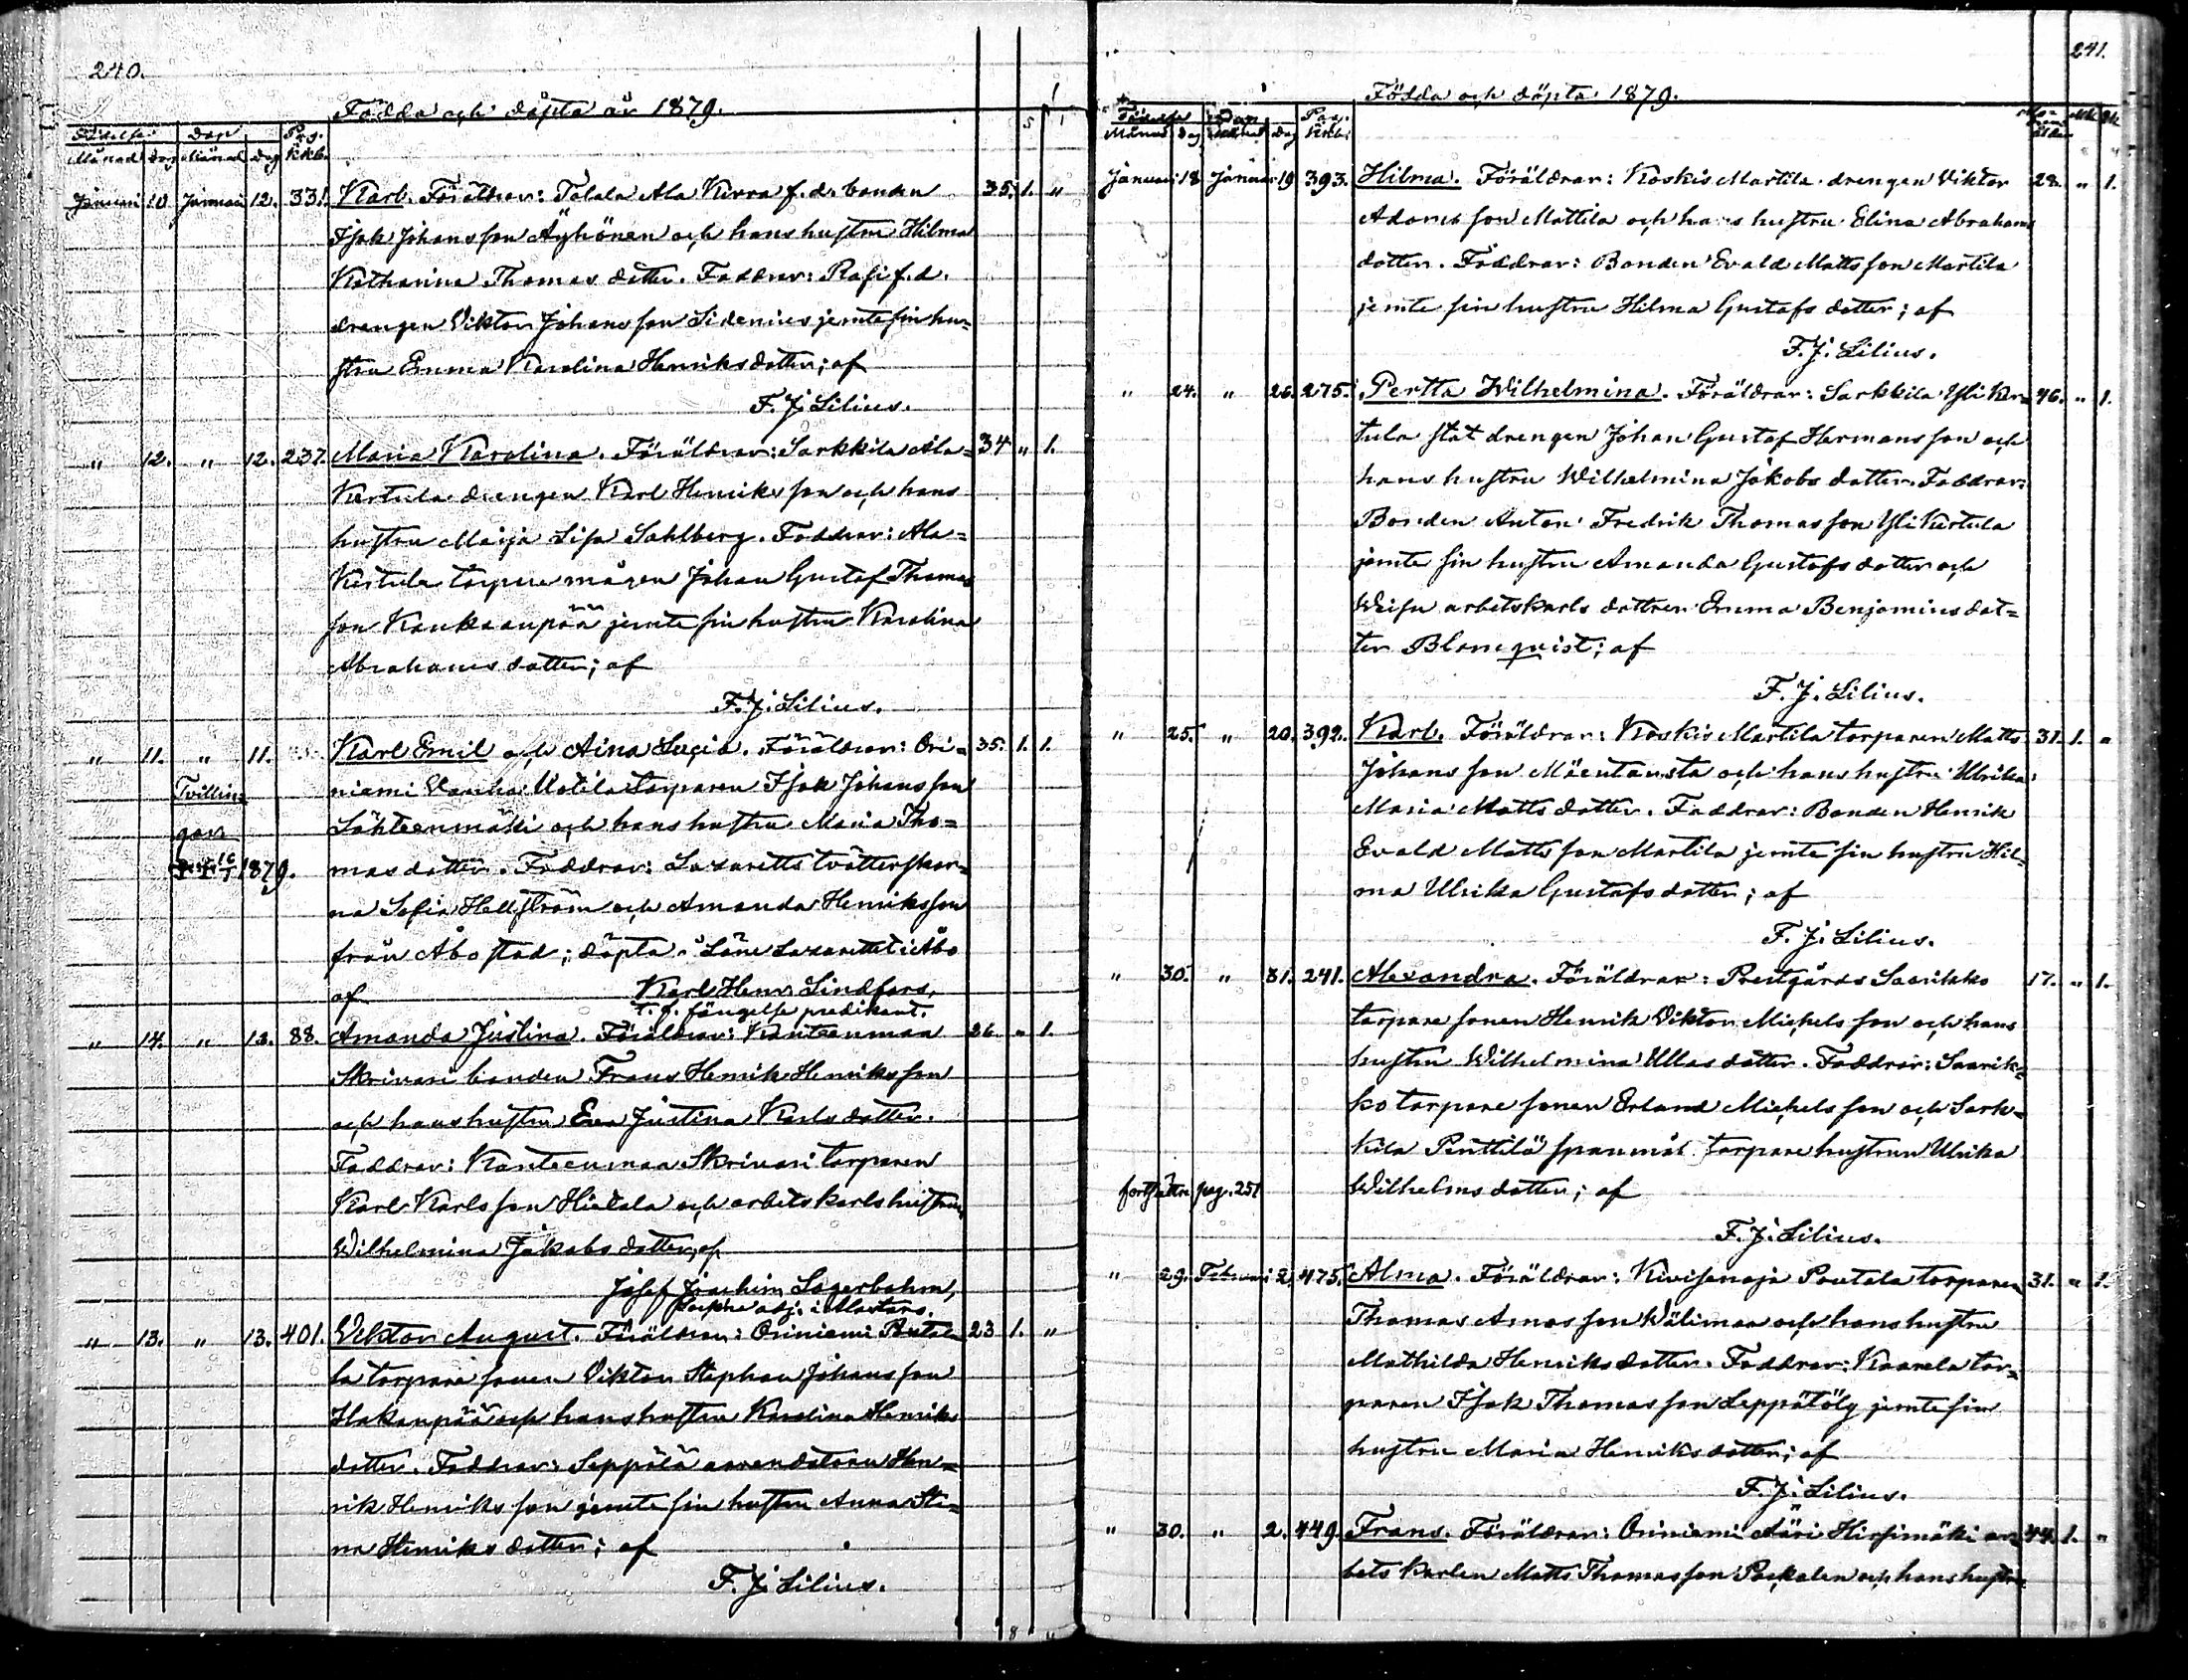 240.
Födda och döpta år 1879.
Födelse Dop Pag.
Månad Dag Månad Dag Kkb.
Januari 10 Januari 12. 331. Karl. Föräldrar: Talala Ala Kirra f. d. bonden 35. 1. "
Isak Johansson Äyhönen och hans hustru Hilma
Katharina Thomasdotter. Faddrar: Rasi f. d.
drengen Viktor Johansson Sidenius jemte sin hu-
stru Emma Karolina Henriksdotter; af
F. J. Lilius.
" 12. " 12. 237. Maria Karolina. Föräldrar: Sarkkila Ala- 34 " 1.
Kertula drengen Karl Henriksson och hans
hustru Maija Lisa Sahlberg. Faddrar: Ala-
Kertula torpare mågen Johan Gustaf Thomas
son Kankaanpää jemte sin hustru Karolina
Abrahamsdotter; af
F. J. Lilius.
" 11. " 11. Karl Emil och Aina Lucia. Föräldrar: Ori- 35. 1. 1.
Tvillin- niemi Vanha Uotila torparen Isak Johansson
gar Lähteenmäki och hans hustru Maria Tho-
1879. masdotter. Faddrar: Lazaretts tvätterskor-
na Sofia Hellström och Amanda Henriksson
från Åbo stad; döpta i Läne Lazarettet i Åbo
af Karl Henr. Lindfors,
t. f. fängelse predikant.
" 14. " 18. 88. Amanda Justina. Föräldrar: Kanteenmaa 26 " 1.
Skrivari bonden Frans Henrik Henriksson
och hans hustru Eva Justina Karlsdotter.
Faddrar: Kanteenmaa Skrivari torparen
Karl Karlsson Hietala och arbetskarls hustrun
Wilhelmina Jakobsdotter; af
Josef Joachim Lagerbohm,
Sockne adj. i Mar
" 13. " 13. 401. Viktor August. Föräldrar: Oriniemi Pouta 23 1. "
la torpare sonen Viktor Stephan Johansson
Hakanpää och hans hustru Karolina Henriks
dotter. Faddrar: Seppälä arrendatorn Hen-
rik Henriksson jemte sin hustru Anna Sti-
na Henriksdotter; af
F. J. Lilius.
241.
Födda och döpta 1879.
Födelse Dop Pag.
Månad Dag Månad Dag Kkb.
Januari 18 Januari 19 393. Hilma. Föräldrar: Koskis Martila drengen Viktor 28. " 1.
Adamsson Mattila och hans hustru Elina Abrahams
dotter. Faddrar: Bonden Evald Mattsson Martila
jemte sin hustru Hilma Gustafsdotter; af
F. J. Lilius.
" 24. " 26. 275. Pertta Wilhelmina. Föräldrar: Sarkkila Yli Ker- 46. " 1.
tula statdrengen Johan Gustaf Hermansson och
hans hustru Wilhelmina Jakobsdotter. Faddrar:
Bonden Anton Fredrik Thomasson Yli Kertula
jemte sin hustru Amanda Gustafsdotter och
arbetskarls dottren Emma Benjaminsdot-
ter Blomqvist; af
F. J. Lilius.
" 25. " 20. 392. Karl. Föräldrar: Koskis Martila torparen Matts 31. 1. "
Johansson Mäentausta och hans hustru Ulrika
Maria Mattsdotter. Faddrar: Bonden Henrik
Evald Mattsson Martila jemte sin hustru Hil-
ma Ulrika Gustafsdotter; af
F. J. Lilius.
" 30. " 31. 241. Alexandra. Föräldrar: Prestgårds Saarikko 17. " 1.
torpare sonen Henrik Viktor Michelsson och hans
hustru Wilhelmina Ullasdotter. Faddrar: Saarik-
ko torpare sonen Erland Michelsson och Sark-
kila Penttilä torpare hustrun Ulrika
fortsättn pag. 251 Wilhelmsdotter; af
F. J. Lilius.
" 29. Februari 2. 475. Alma. Föräldrar: Kivisenoja Poutala torparen 31. " 1.
Thomas Amosson Välimaa och hans hustru
Mathilda Henriksdotter. Faddrar: Kaarela tor-
paren Isak Thomasson Leppätöly jemte sin
hustru Maria Henriksdotter; af
F. J. Lilius.
" 30. " 2. 449. Frans. Föräldrar: Oriniemi Ääri Hirsimäki ar- 44. 1. "
betskarlen Matts Thomasson Packalen och hans hustru